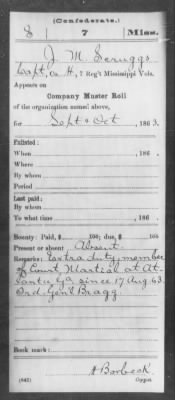 (Confederate.)
S 7 Miss.
J. M. Scruggs
Capt, Co. H, 7 Reg't Mississippi Vols.
Appears on
Company Muster Roll
of the organization named above,
for Sept & Oct, 1863.
Enlisted:
When , 186 .
Where
By whom
Period
Last paid:
By whom
To what time , 186 .
Bounty: Paid, $ 100; due, $ 100
Present or absent Absent
Remarks: Extra duty, member
of Court Martial at At-
lanta Ga. since 17 Aug 63.
Ord. Gen'l Bragg.
Book mark:
(642) Copyist.